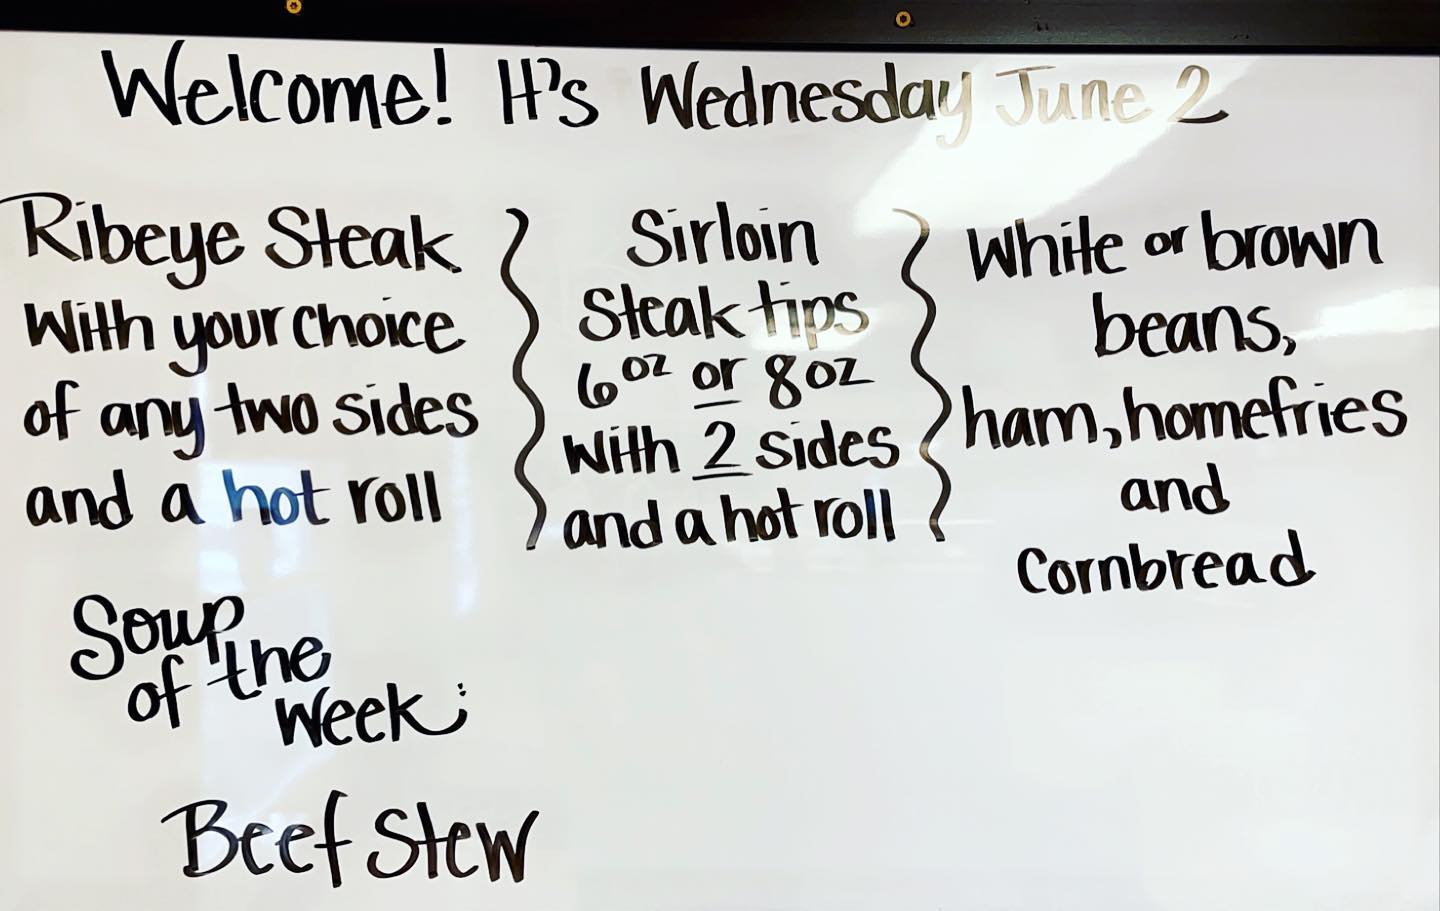 Welcome! It's Wednesday June 2
Ribeye Steak
With your choice
of any two sides
and a hot roll
Sirloin
Steak tips
6oz or 8oz
with 2 sides
and a hot roll
White or brown
beans,
ham, homefries
and
Cornbread
Soup
of the
Week:
Beef Stew